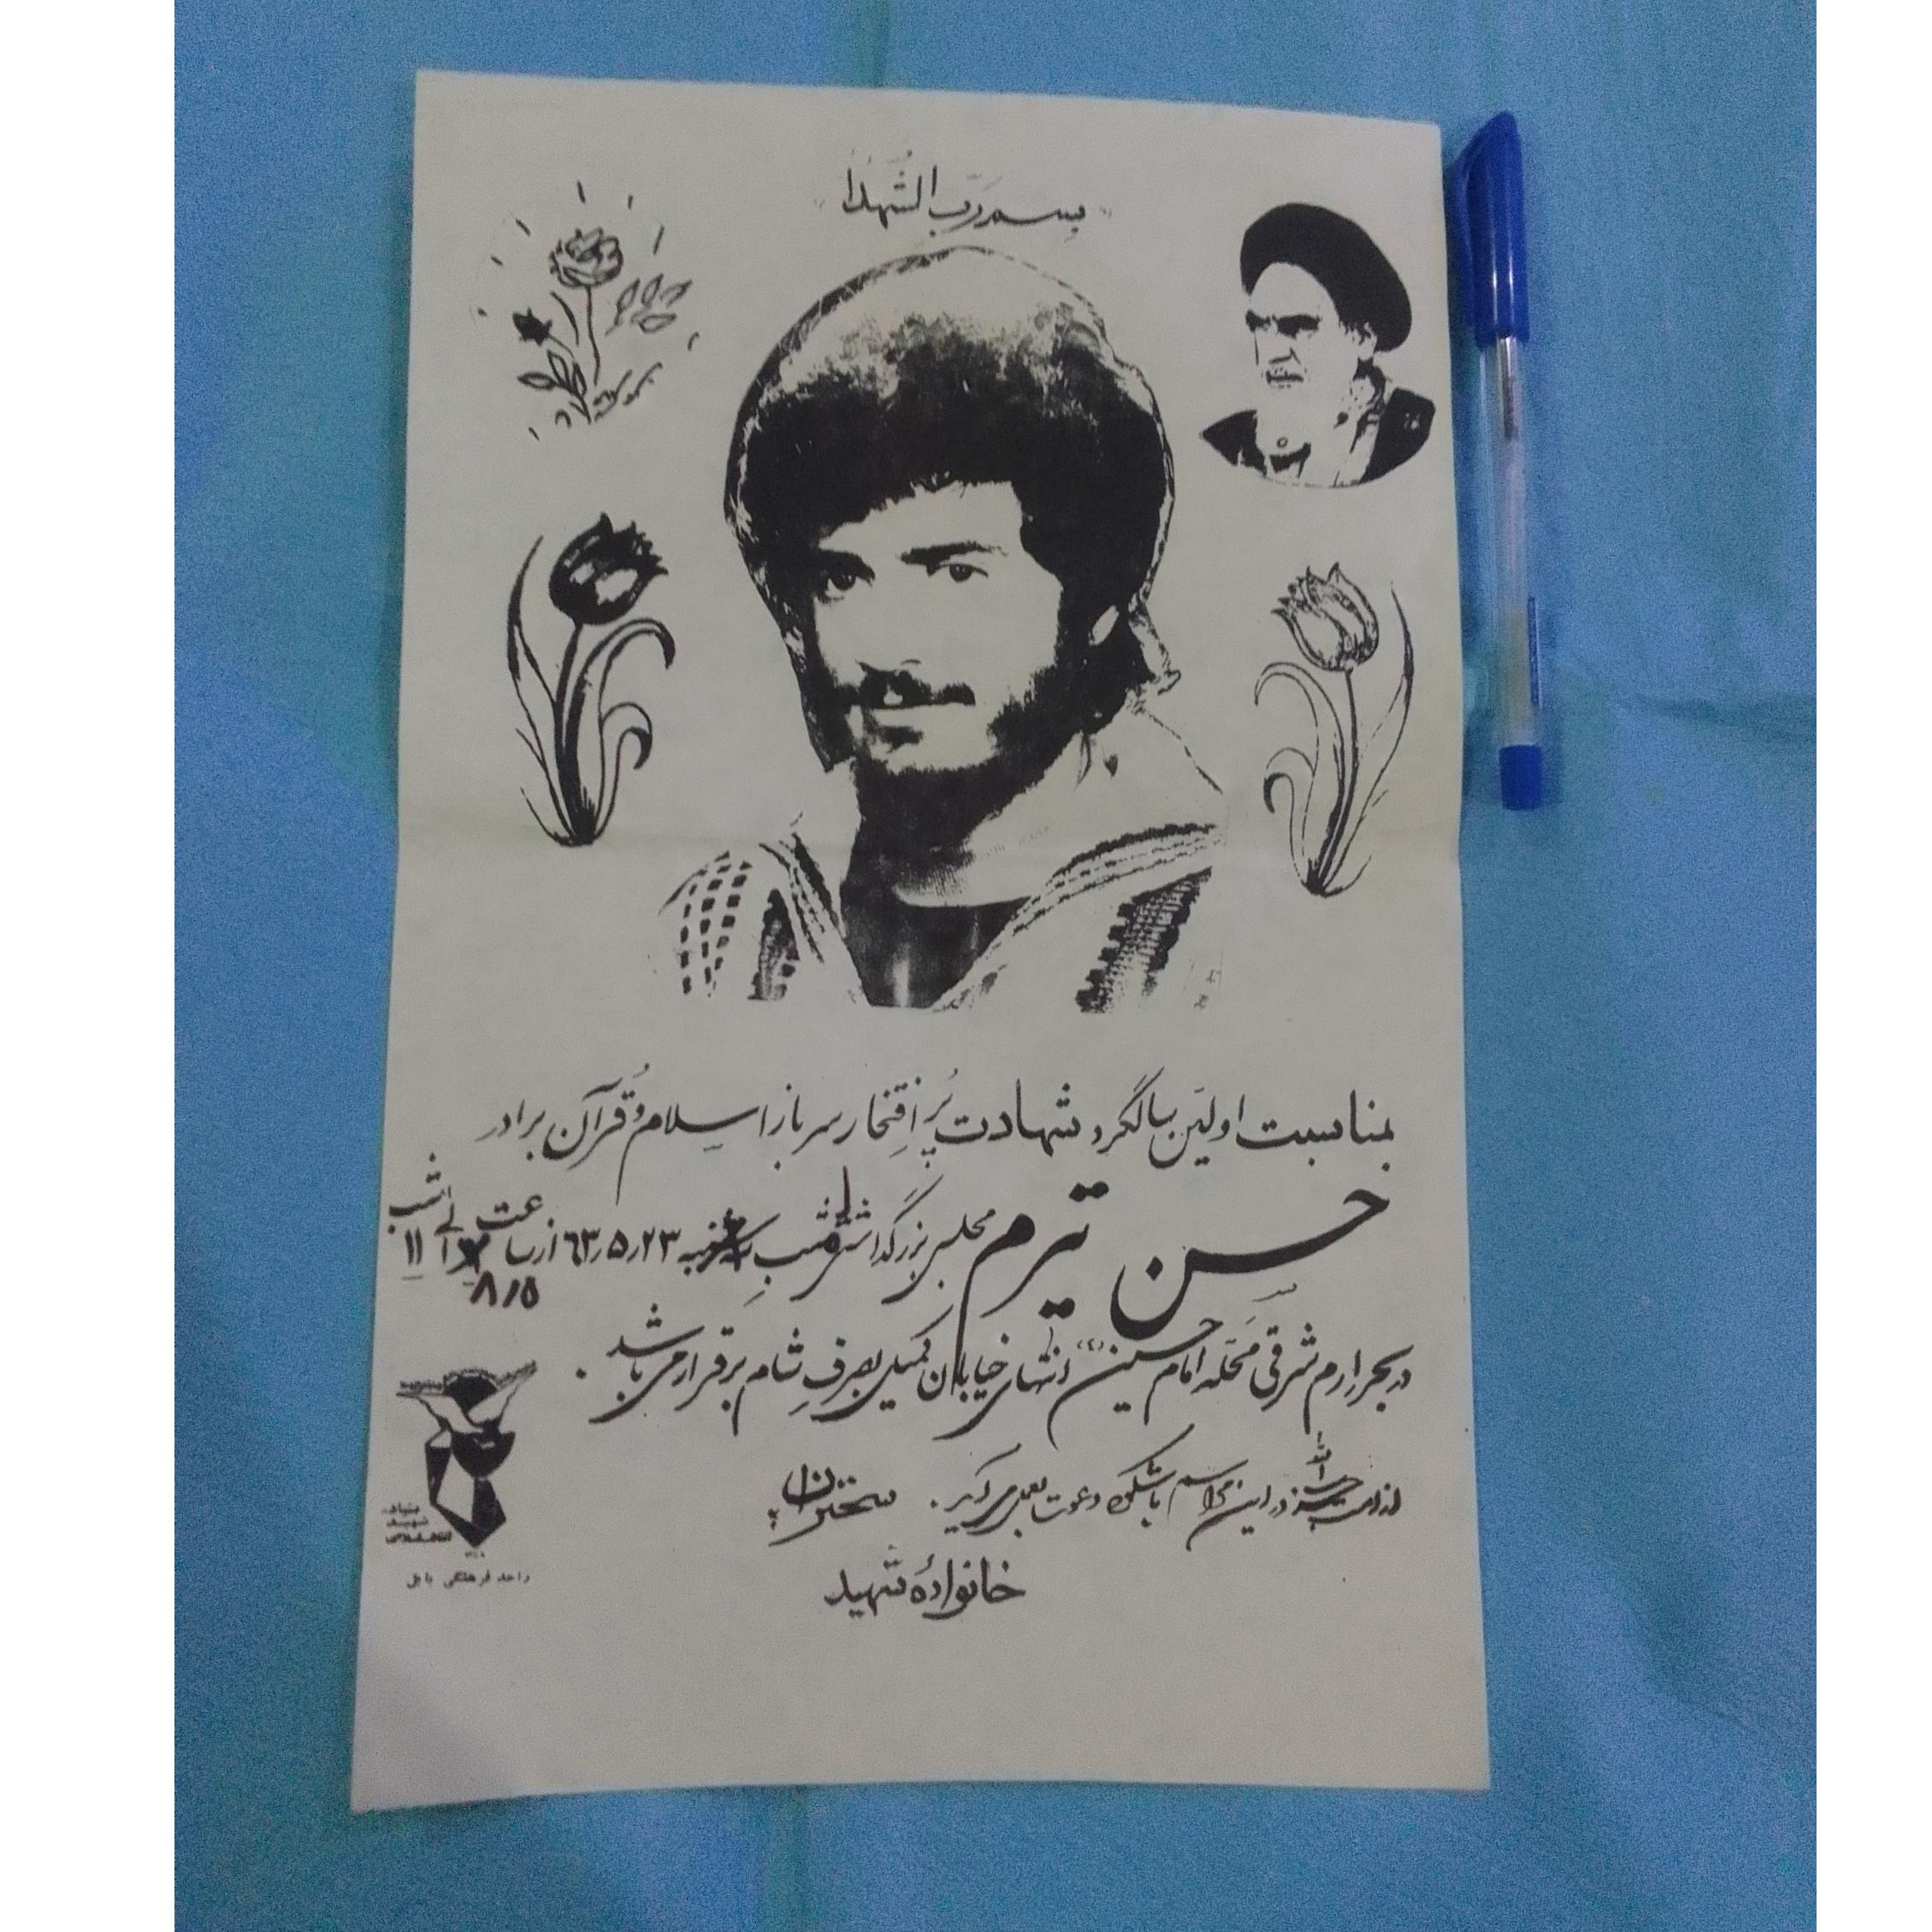 بسم ربّ الشّهداء
بمناسبت اولین سالگرد شهادت پُر افتخار سرباز اسلام و قُرآن برادر
حسن تیرم مجلس بزرگداشتی شب ۶۳٫۵٫۲۳ از ساعت ۸٫۵ الی ۱۱ شب
در بحرارم شرقی محله امام حسین (ع) انتهای خیابان کمیل بصرفِ شام برقرار می باشد .
از امت حزب الله در این مراسم باشکوه دعوت بعمل می آید .
خانوادهٔ شهید
بنیاد شهید انقلاب اسلامی
واحد فرهنگی بابل